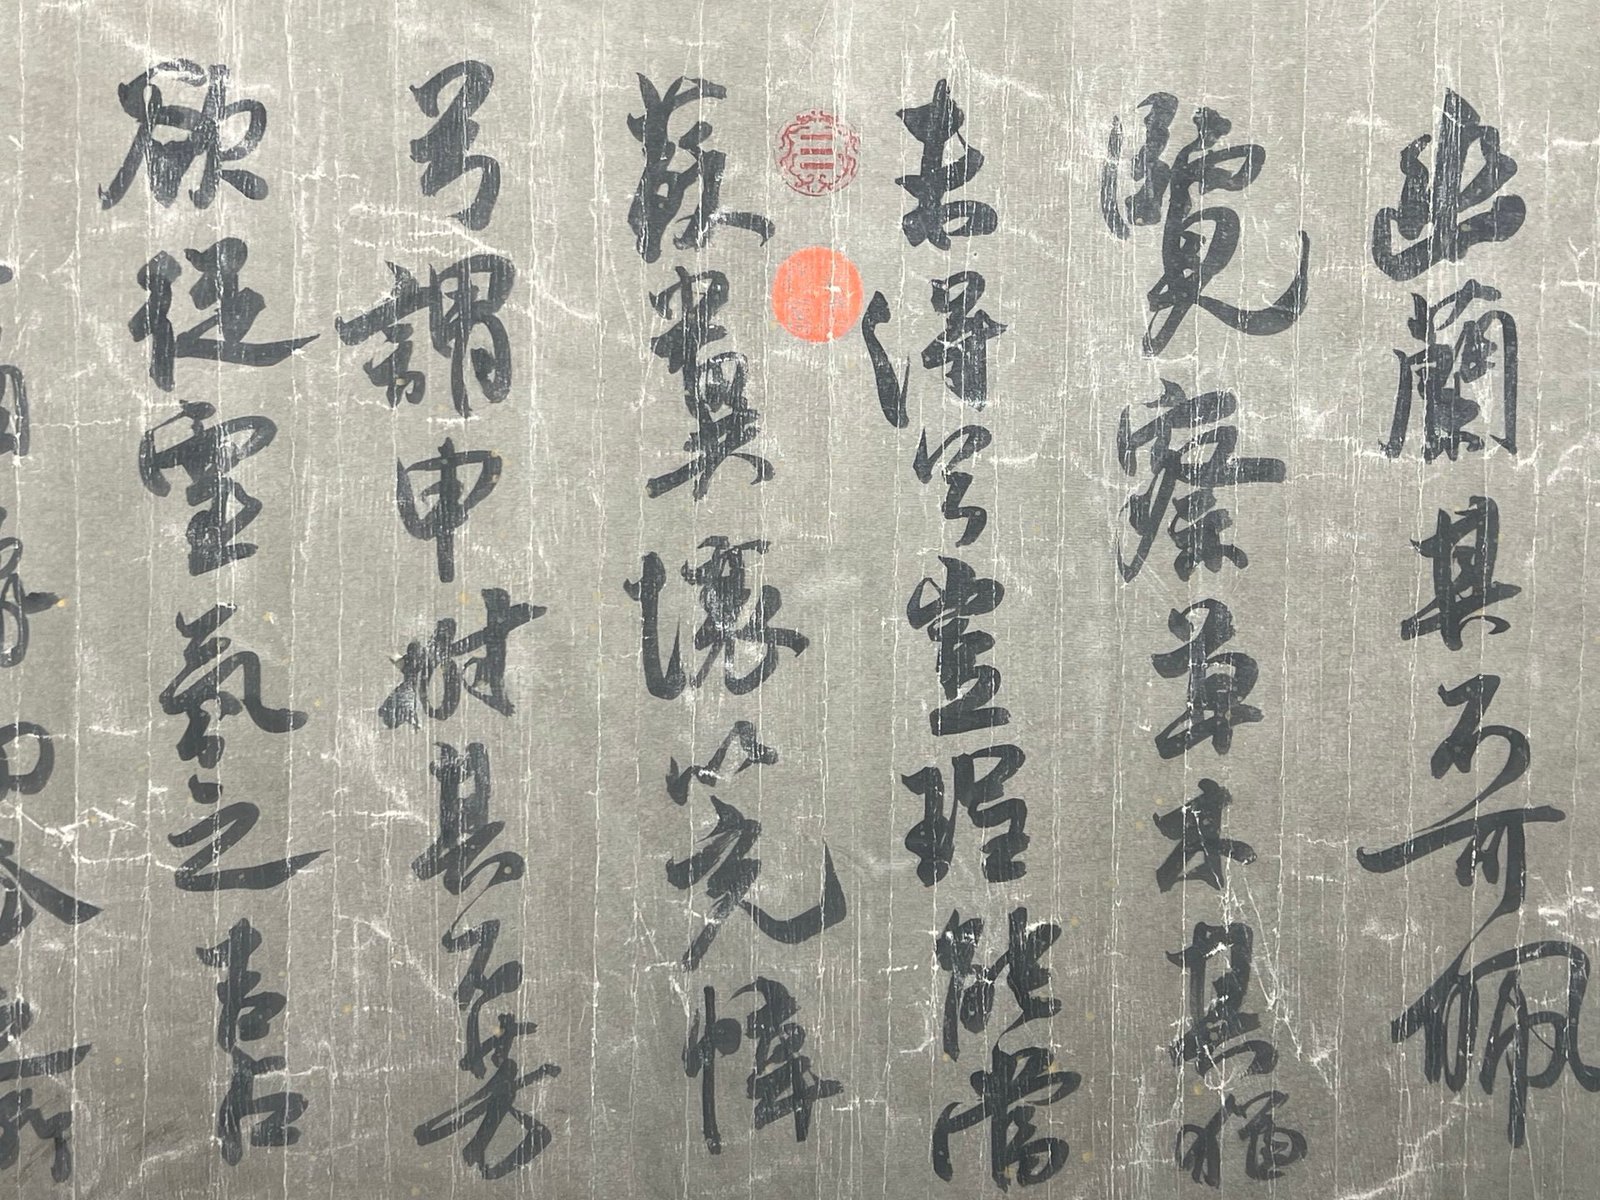 幽蘭其不可佩
覽察草木其猶
未得兮豈珵能當
蘇糞壤以充幃
兮謂申椒其不芳
欲從靈氛之吉占